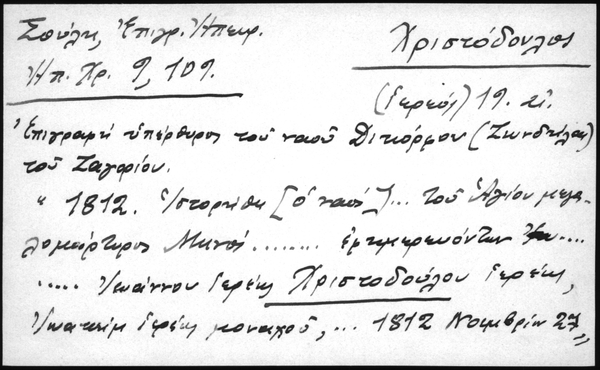 Σούλη, Ἐπιγρ. Ἠπειρ.
Ἠπ. Χρ. 9, 109.
Χριστόδουλος
(Ἱερεύς) 19. αἰ.
Ἐπιγραφὴ ὑπέρθυρος τοῦ ναοῦ Δικόρφου (Ζονδίλα)
τοῦ Ζαγορίου.
" 1812. Ἱστορήθη [ὁ ναός]... τοῦ Ἁγίου μεγα-
λομάρτυρος Μηνᾶ ........ ἐφημερευόντων ....
..... Ἰωάννου Ἱερέως Χριστοδούλου Ἱερέως,
Ἰωακεὶμ Ἱερέως μοναχοῦ, ... 1812 Νοεμβρίου 27 "